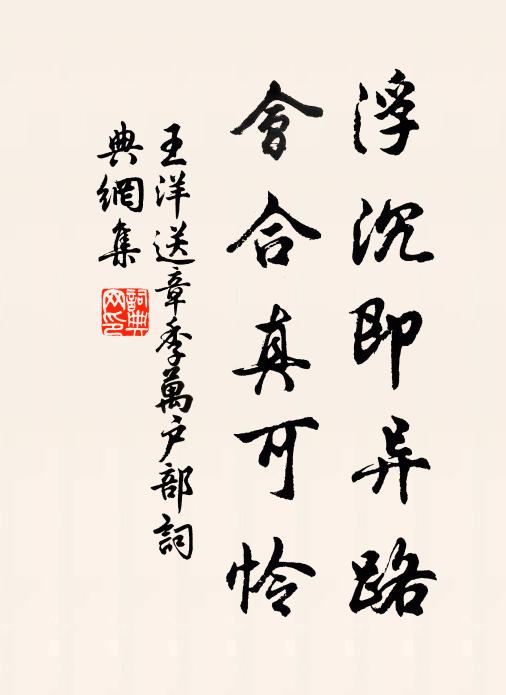 浮沉即异路
會合真可怜
王洋送章季萬户部詞
典網集
詞典网印